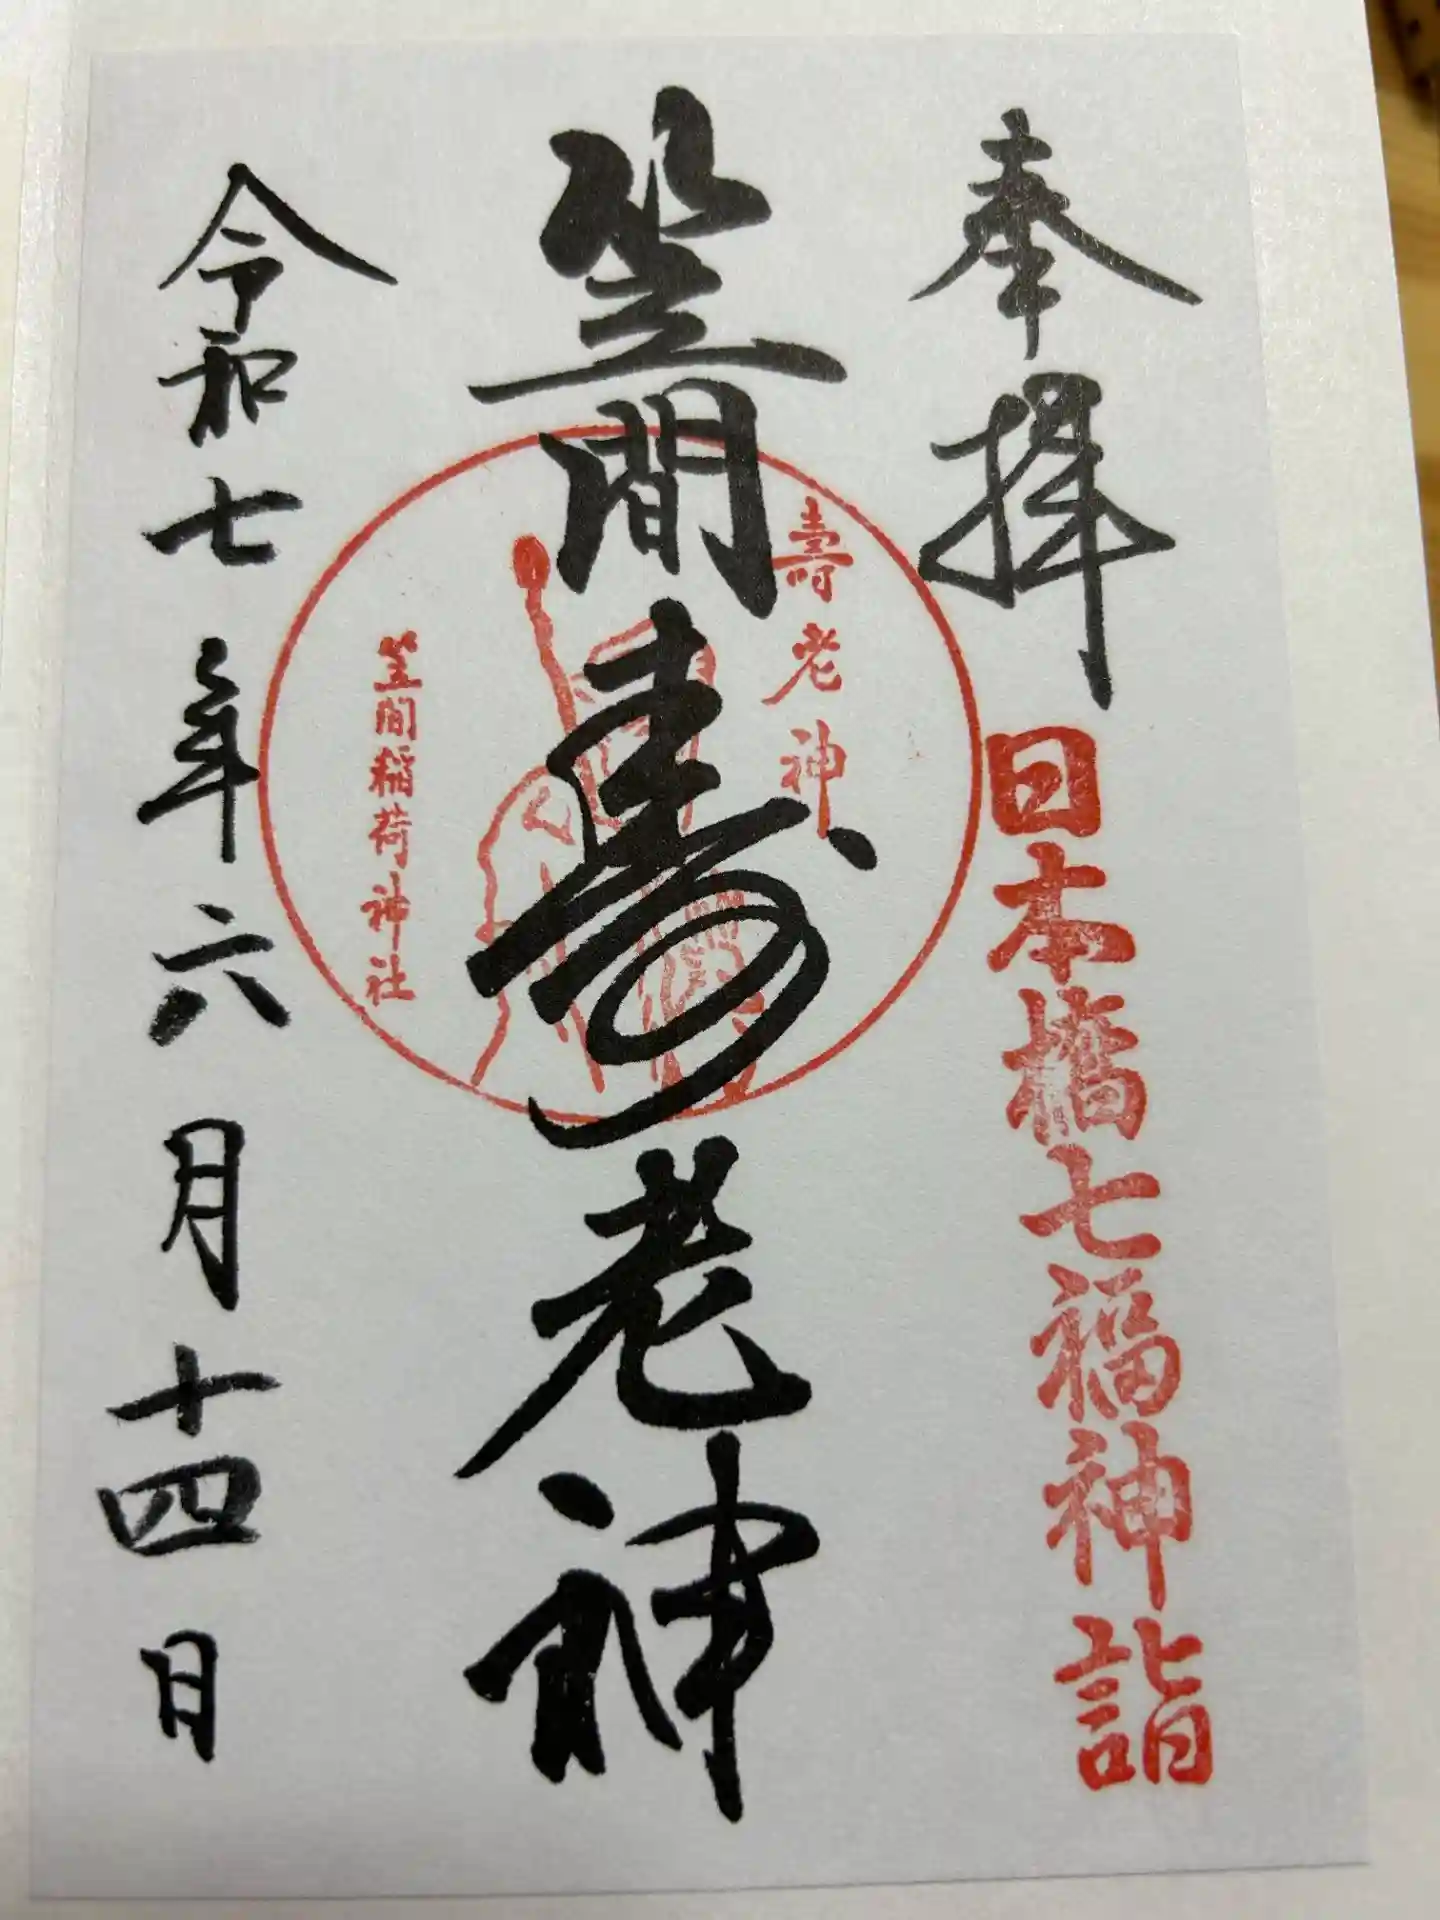 奉拝
日本橋七福神詣
笠間寿老神
壽老神
笠間稲荷神社
令和七年六月十四日